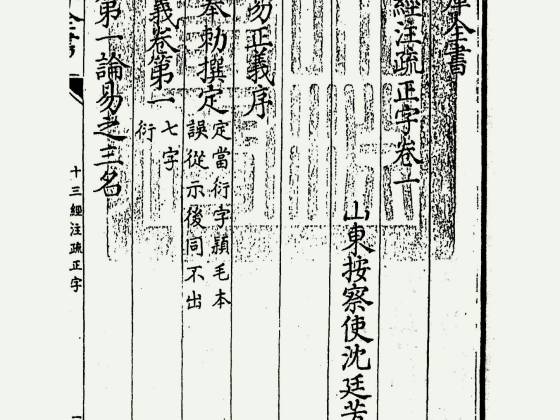 庫全書
經注疏正字卷一
山東按察使沈廷芳
易正義序
奉勅撰定定當衍字穎毛本誤從示後同不出
義卷第一七字衍
第一論易之三名
十三經注疏正字